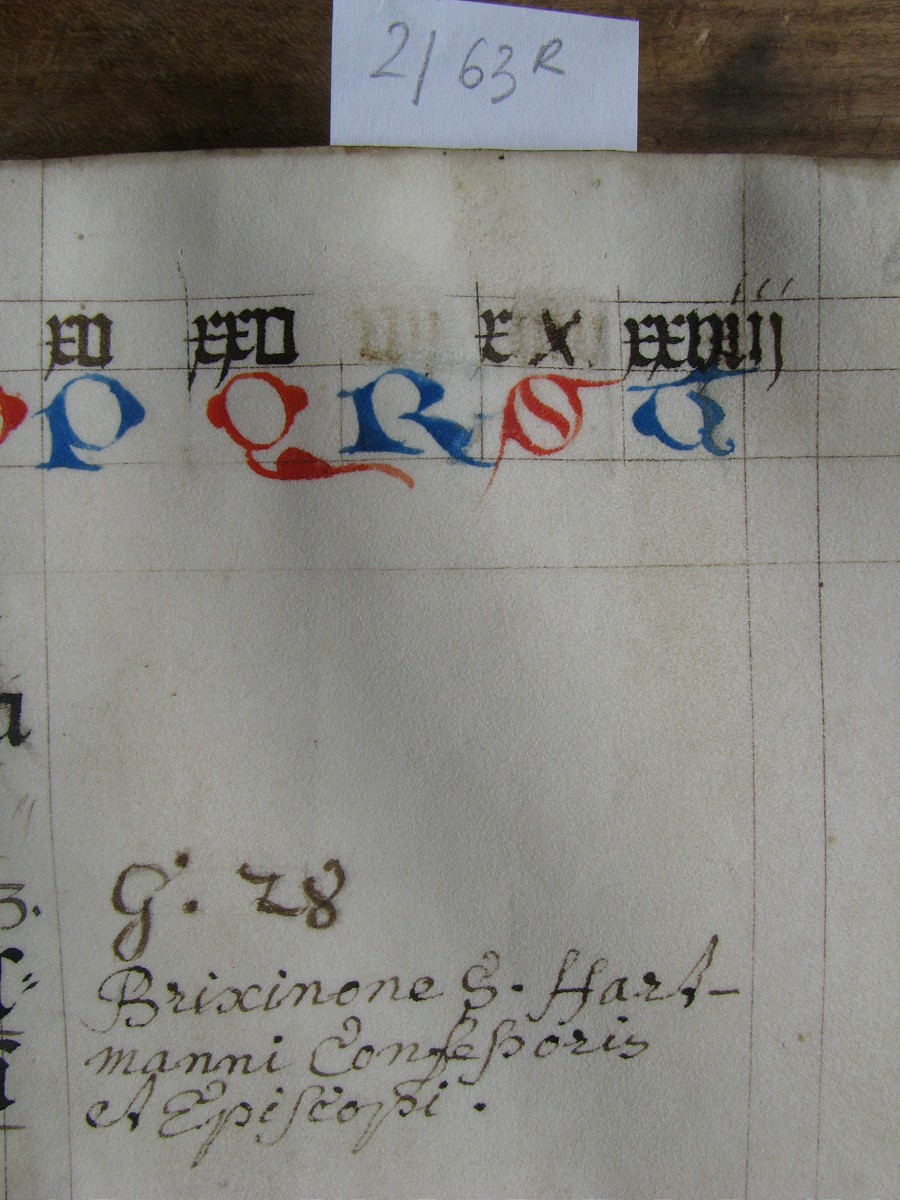 2/63R
xii xxii x x
P Q R S T
a
3.
G. 28
Brixinone S. Hart-
manni Confessoris
et Episcopi.